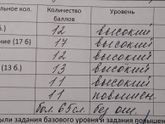 ьное кол. Количество баллов Уровень
12 высокий
ние (17 б) 17 высокий
12 высокий
(13 б.) 13 высокий
11 высокий
11 высокий
11 повышен
без ош.
ыли задания базового уровня и задания повышен